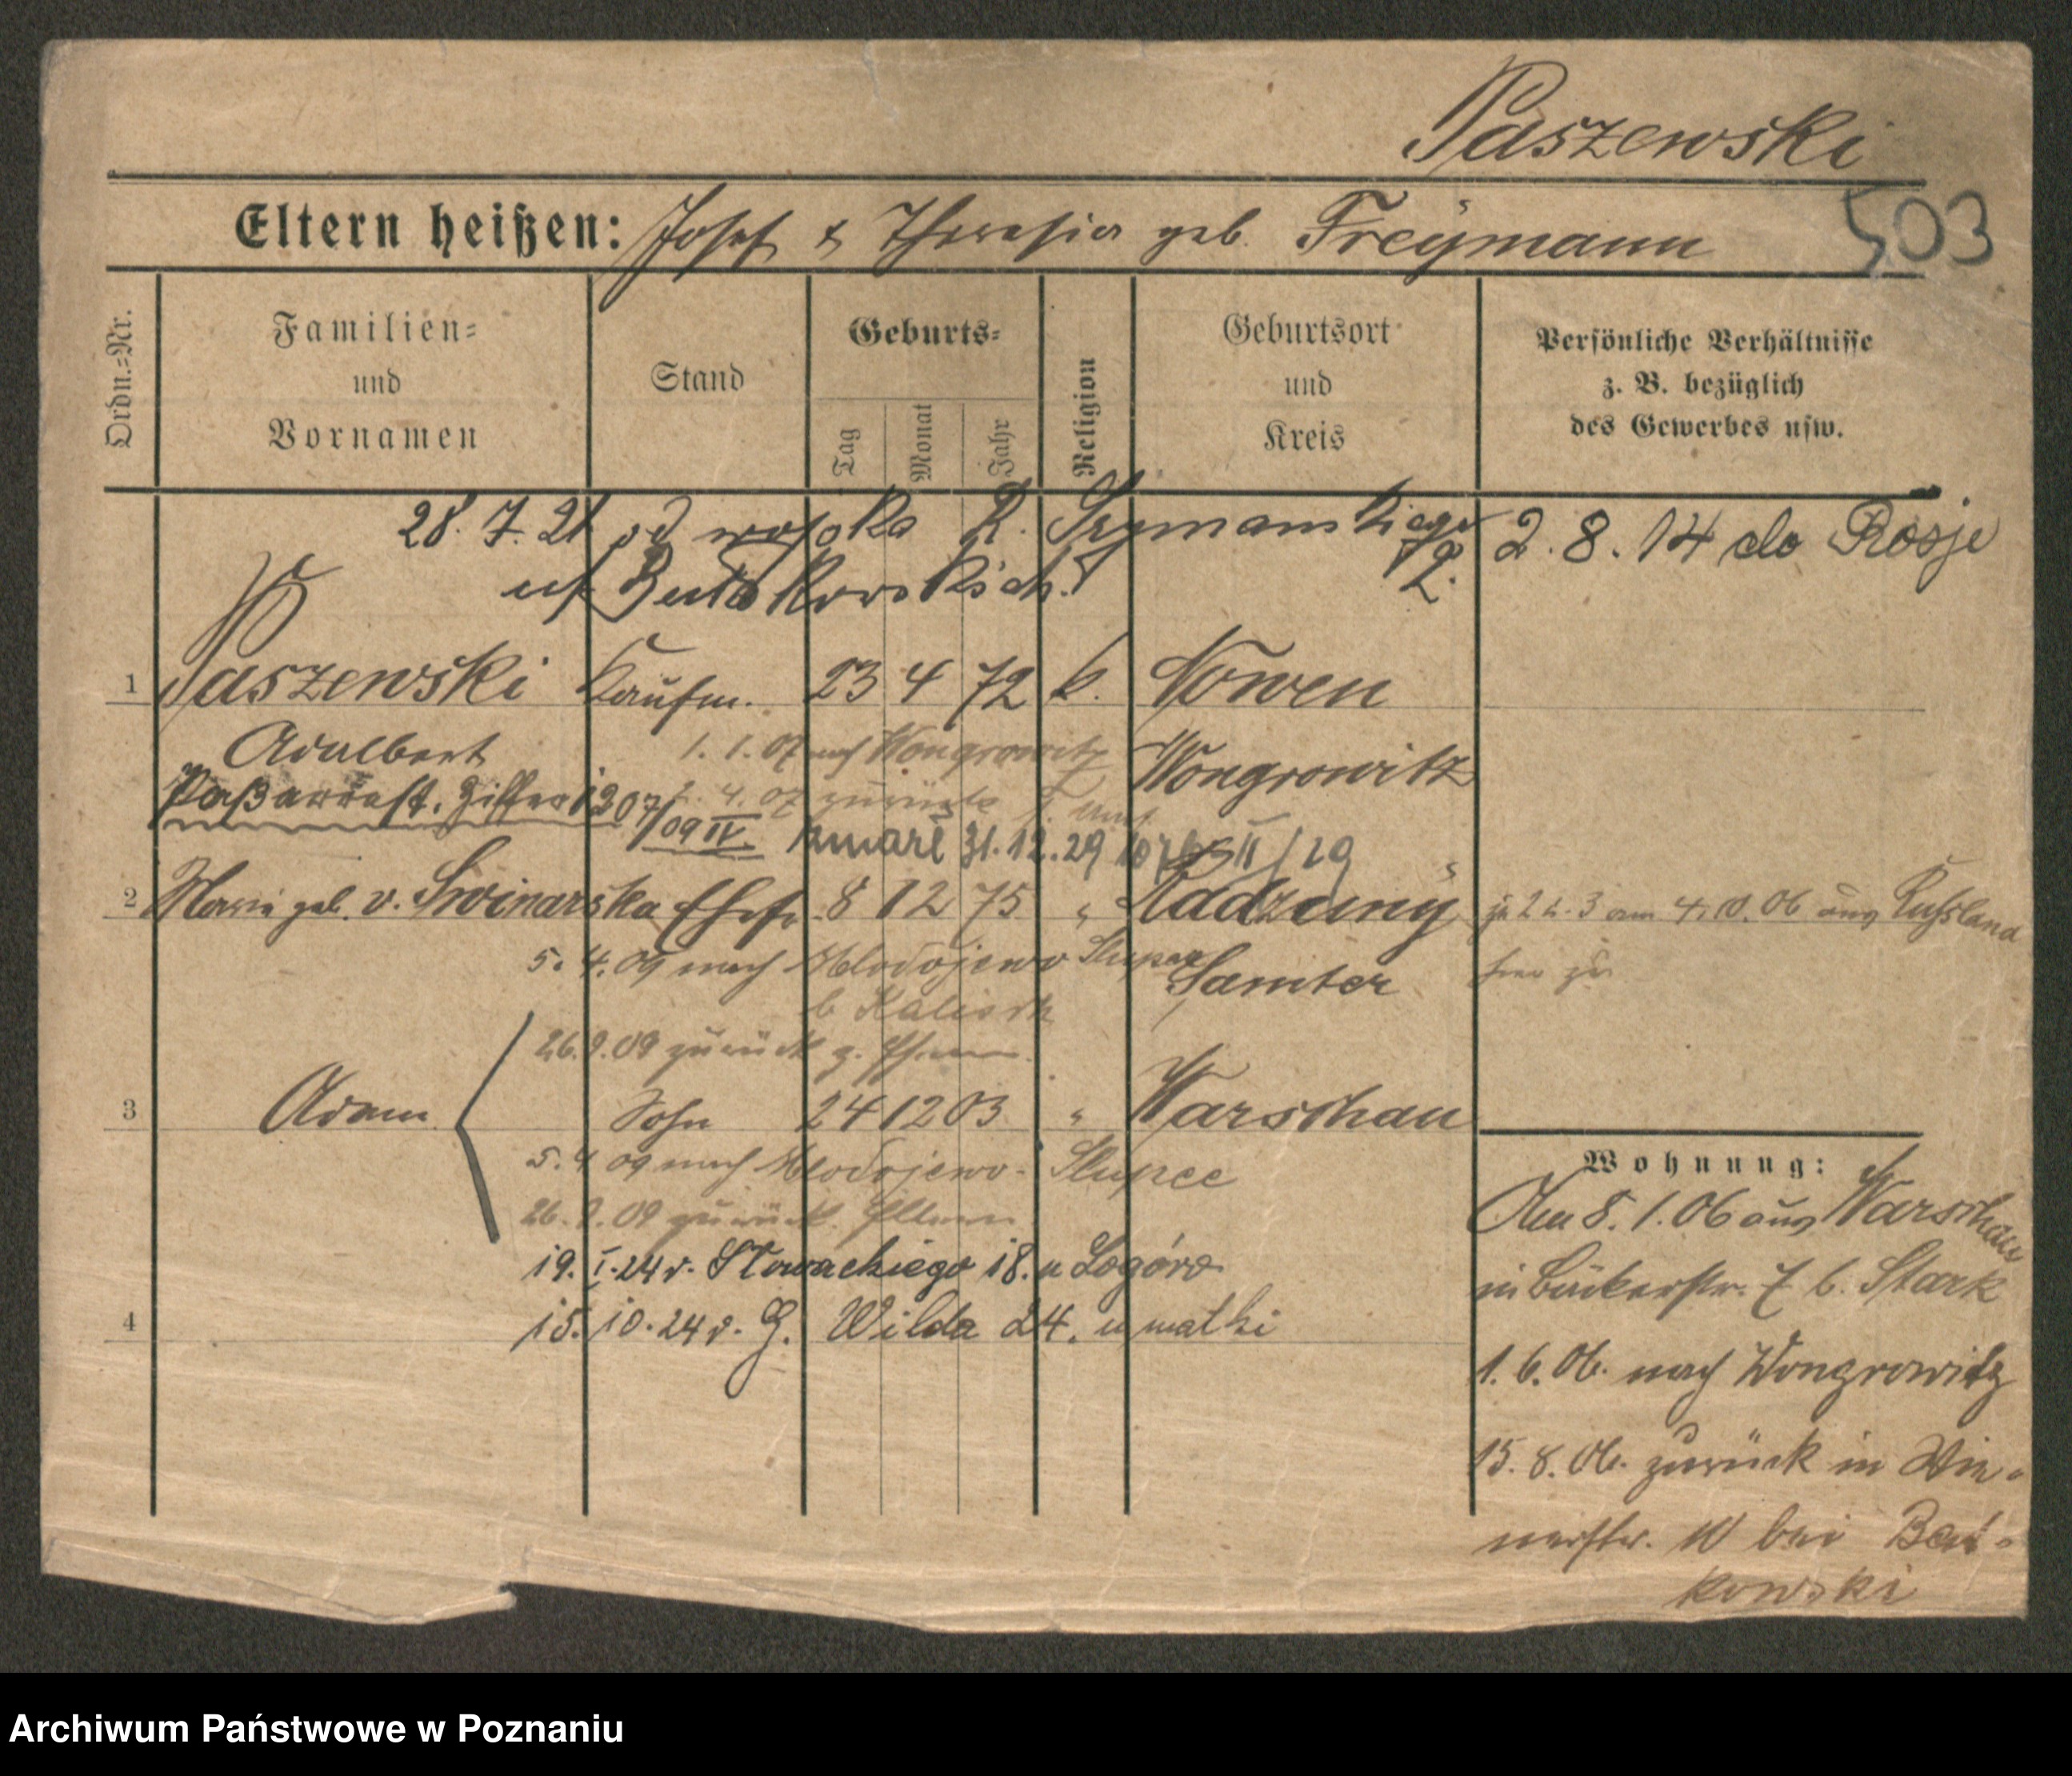 Paszewski
503
Eltern heißen: Josef & Theresia geb. Freymann
Ordn.=Nr.
Familien=
und
Vornamen
Stand
Geburts=
Tag
Monat
Jahr
Religion
Geburtsort
und
Kreis
Persönliche Verhältnisse
z. B. bezüglich
des Gewerbes usw.
28. 7. 21 od wojska R.
2. 8. 14 do Rosje
1 Paszewski Kaufm. 23 4 72 k. Nowen
Adalbert
1. 1. 07 nach Wongrowitz
Wongrowitz
4. 07 zurück
1207/09 IV.
zmarł 31.12.29
2 Maria geb. v. Swinarska Ehefr. 8 12 75 " Radzyny
zu 2 u. 3 am 4.10.06 aus Russland
hier zu
5. 4. 09 nach Mlodojewo Slupce
Samter
b Kalisch
26.9.09 zurück z.
3 Adam Sohn 24 12 03 " Warschau
5. 4 09 nach Mlodojewo - Slupce
26.9.09 zurück. Eltern
19. I. 24 v. Słowackiego 18. u
4 15. 10. 24 v. G. Wilda 24. u matki
Wohnung:
Am 8. 1. 06 aus Warschau
in Bäckerstr. 7 b. Stark
1. 6. 06. nach Wongrowitz
15. 8. 06. zurück in
10 bei But=
kowski
Archiwum Państwowe w Poznaniu